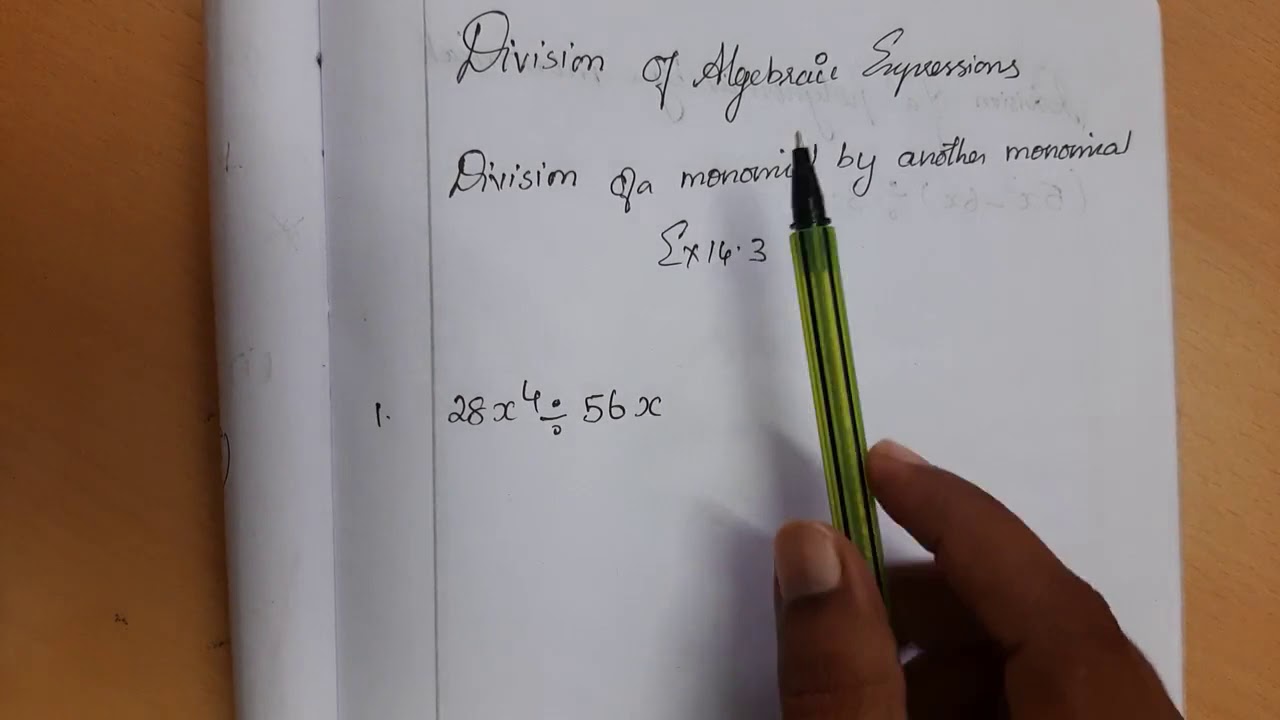 Division of Algebraic Expressions
Division of a monomial by another monomial
Ex 14.3
1. 28x⁴ ÷ 56x